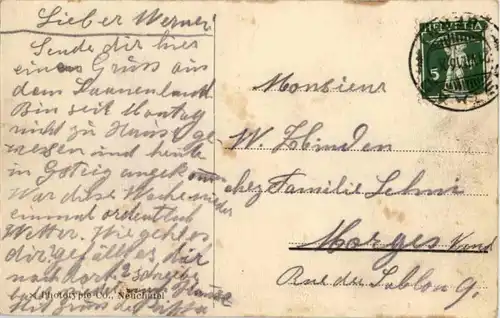 Lieber Werner
Sende dir hies
einen Gruss aus
dem Saanenland
Bin seit Montag
nicht zu Hause ge-
wesen und heute
in Gsteig angekom
War diese Woche wieder
einmal ordentlich
Wetter. Wie geht es
dir? gefällt es dir
noch dort? schreibe
Phototypie Co., Neuchâtel
Mit Gruss
HELVETIA
5
Monsieur
W. Zbinden
chez Familie
Morges Vaud
Rue du Sablon 9.